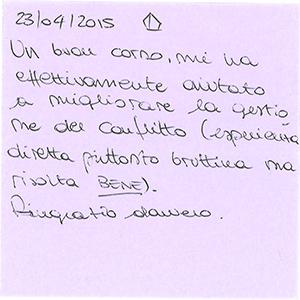 23/04/2015
Un buon corso, mi ha
effettivamente aiutato
a migliorare la gestio
ne del conflitto (esperienza
diretta piuttosto bruttina ma
risolta BENE).
Ringrazio davvero.